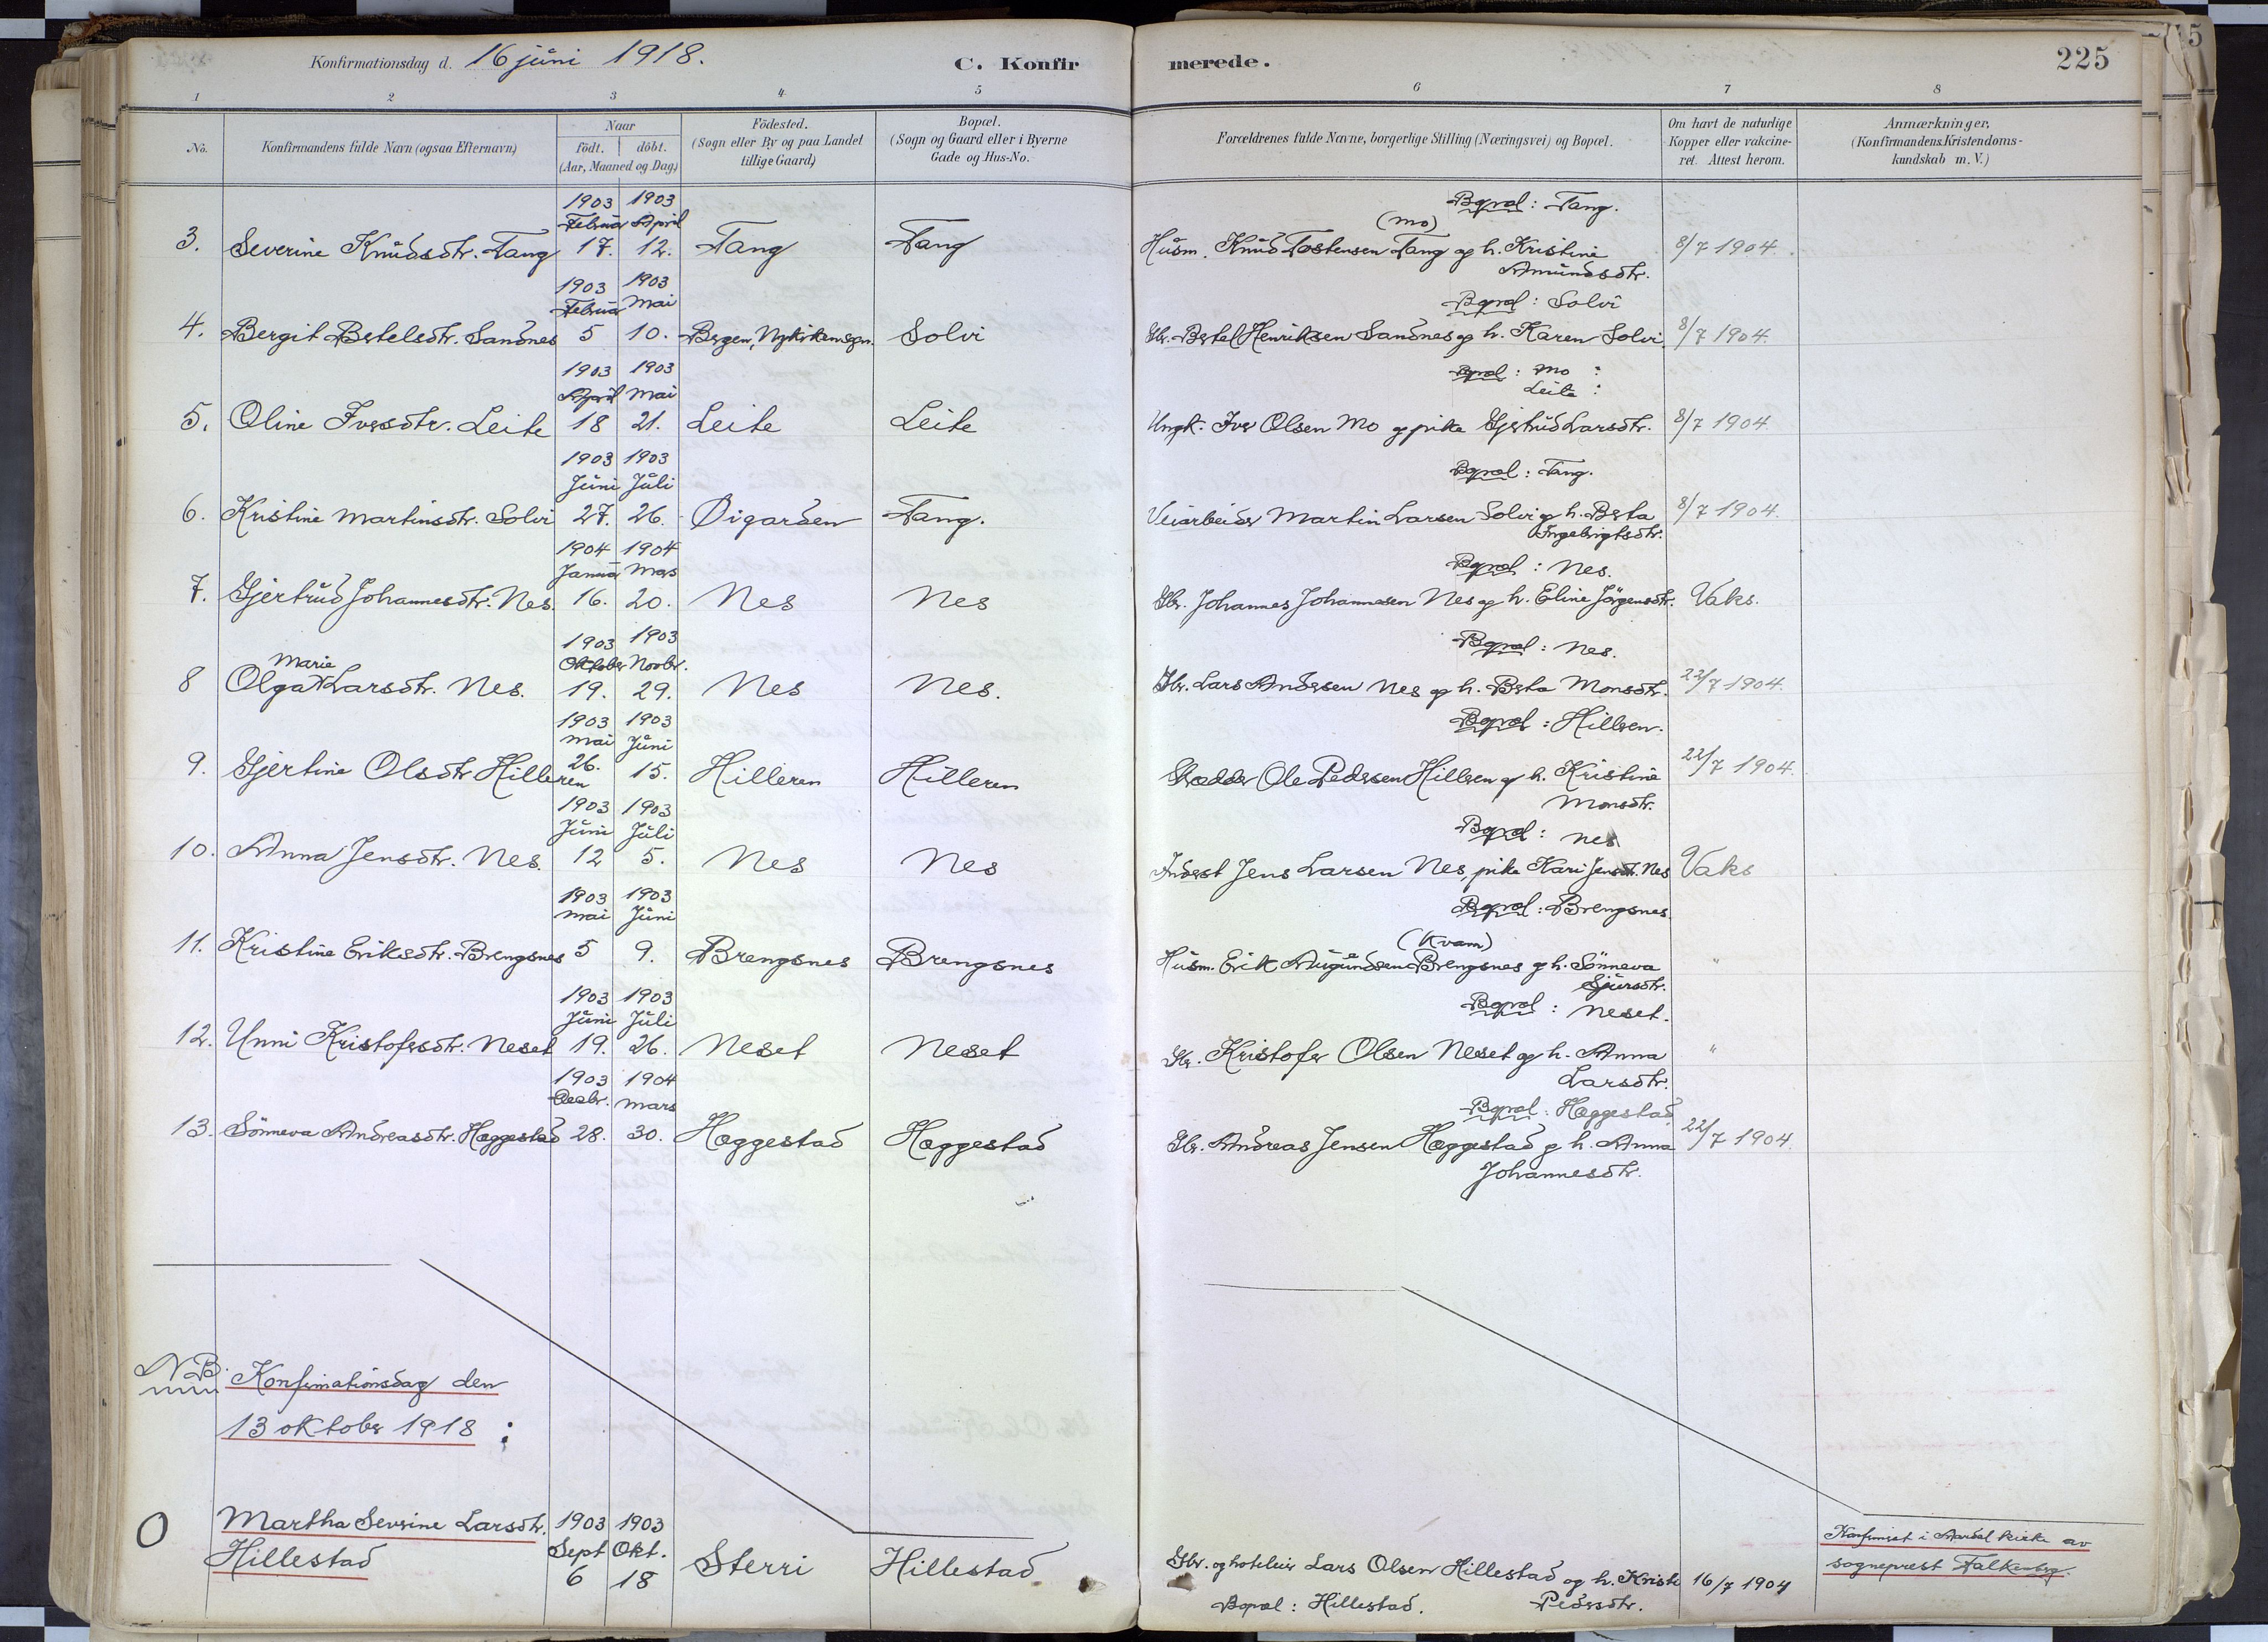 Konfirmationsdag d. 16 juni 1918.
C. Konfir
merede.
225
1 2 3 4 5 6 7 8
No.
Konfirmandens fulde Navn (ogsaa Efternavn)
Naar
födt. döbt.
(Aar, Maaned og Dag)
Födested.
(Sogn eller By og paa Landet
tillige Gaard)
Bopæl.
(Sogn og Gaard eller i Byerne
Gade og Hus-No.
Forældrenes fulde Navne, borgerlige Stilling (Næringsvei) og Bopæl.
Om havt de naturlige
Kopper eller vakcine-
ret. Attest herom.
Anmærkninger.
(Konfirmandens Kristendoms-
kundskab m. V.)
1903 1903 Bopæl: Tang.
Februar April (Mo)
3. Severine Knudsdtr. Tang 17. 12. Tang Tang Husm. Knud Tostensen Tang og h. Kristine 8/7 1904.
Amundsdtr.
1903 1903
Februar Mai Bopæl: Solvi
4. Bergit Bertelsdtr. Sandnes 5 10. Bergen, Nykirkensogn. Solvi Gbr. Bertel Henriksen Sandnes og h. Karen Solvi. 8/7 1904.
1903 1903 Bopæl: Mo :
April Mai Leite :
5. Oline Iversdtr. Leite 18 21. Leite Leite Ungk. Iver Olsen Mo og pike Gjertrud Larsdtr. 8/7 1904.
1903 1903 Bopæl: Tang.
Juni Juli
6. Kristine Martinsdtr. Solvi 27. 26. Øigarden Tang. Veiarbeider Martin Larsen Solvi og h. Berta 8/7 1904.
Ingebrigtsdtr.
1904 1904
Januar Mars Bopæl: Nes.
7. Gjertrud Johannesdtr. Nes. 16. 20. Nes Nes Gbr. Johannes Johannesen Nes og h. Eline Jörgensdtr. Vaks.
1903 1903 Bopæl: Nes.
Marie Oktober Novbr.
8 Olga Larsdtr. Nes. 19. 29. Nes Nes. Gbr. Lars Andersen Nes og h. Berta Monsdtr. 22/7 1904.
1903 1903 Bopæl: Hilleren.
Mai Juni
9. Gjertine Olsdtr Hilleren 26. 15. Hilleren Hilleren Skrædder Ole Pedersen Hilleren og h. Kristine 22/7 1904.
Monsdtr.
1903 1903
Juni Juli Bopæl: Nes
10. Anna Jensdtr. Nes. 12 5. Nes Nes Inderst Jens Larsen Nes, pike Kari Jensdt. Nes Vaks
1903 1903 Bopæl: Brengsnes.
Mai Juni (Kvam)
11. Kristine Eriksdtr. Brengsnes 5 9. Brengsnes Brengsnes Husm. Erik Augundsen Brengsnes og h. Sönneva "
Sjursdtr.
1903 1903
Juni Juli Bopæl: Neset.
12. Unni Kristofersdtr. Neset 19. 26. Neset Neset Gbr. Kristofer Olsen Neset og h. Anna "
Larsdtr.
1903 1904
Decbr. Mars Bopæl: Hæggestad
13. Sönneva Andreasdtr. Hæggestad 28. 30. Hæggestad Hæggestad Gbr. Andreas Jensen Hæggestad og h. Anna 22/7 1904.
Johannesdtr.
NB. Konfirmationsdag den
13 oktober 1918 :
O Martha Severine Larsdtr. 1903 1903 Konfirmert i Aardal kirke av
Hillestad Sept Okt. sogneprest Falkenberg.
6 18 Sterri Hillestad Gbr. og hoteleier Lars Olsen Hillestad og h. Kristi 16/7 1904
Bopæl: Hillestad. Pedersdtr.